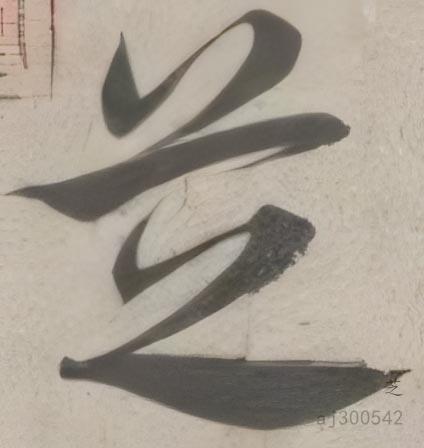 芝
芝
aj300542